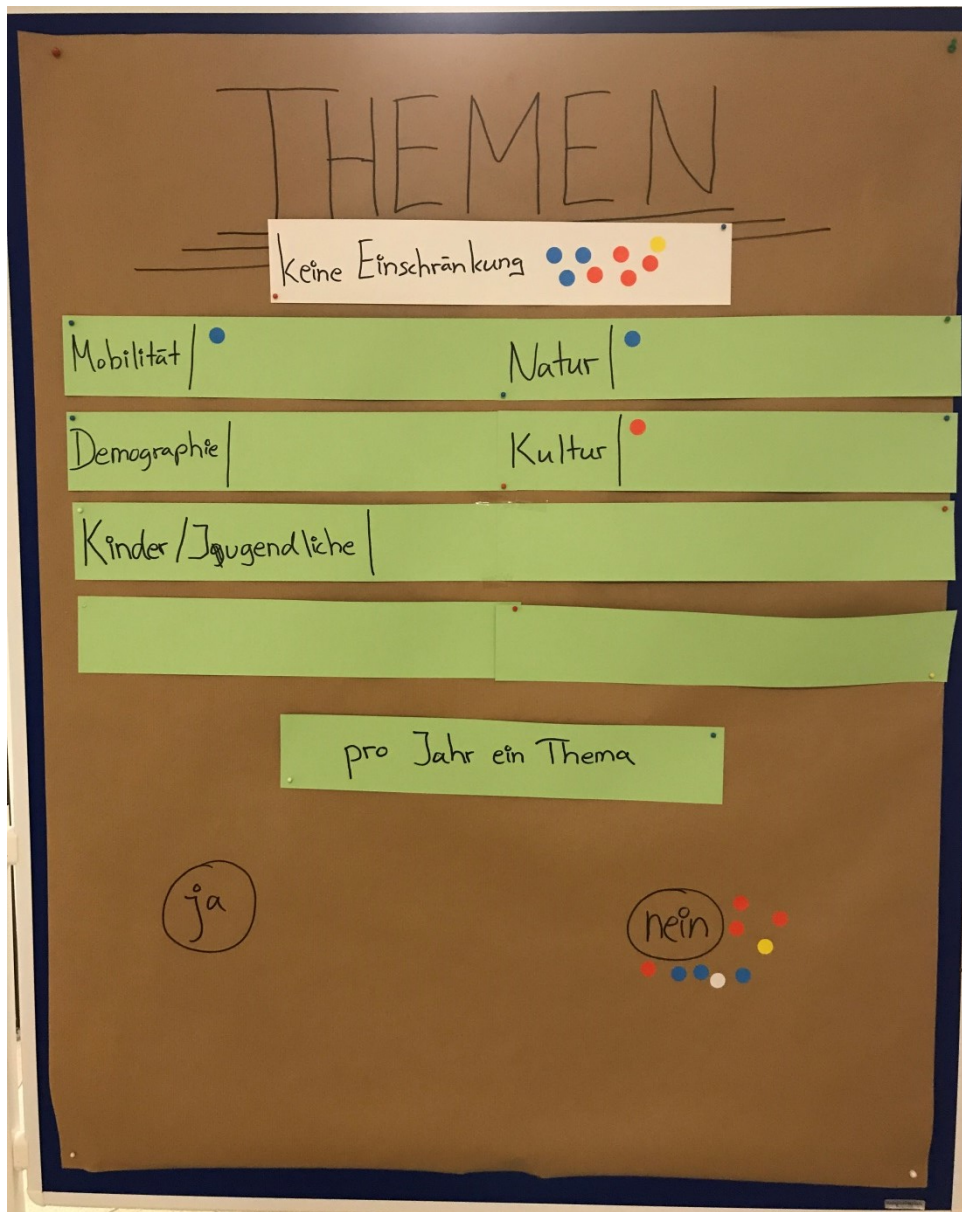 THEMEN
keine Einschränkung
Mobilität
Natur
Demographie
Kultur
Kinder/Jugendliche
pro Jahr ein Thema
ja
nein